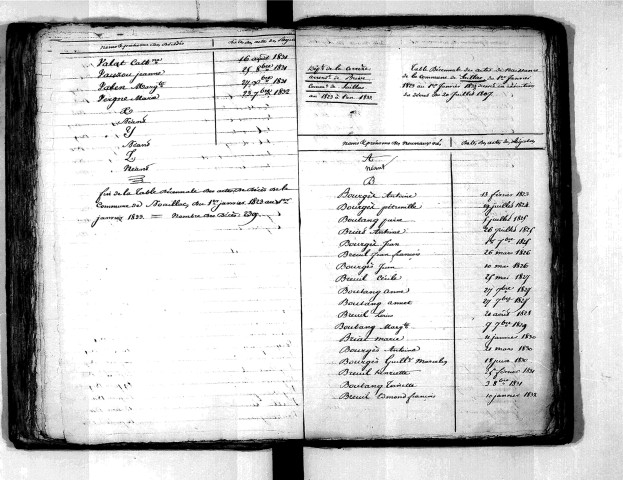 Noms et prénoms des Décédés Date des actes des Registres
Valat Cath.ne 16 août 1831
Vaujou jeanne 25 8bre 1831
Valen Marg.te 1831
Vergne Marie 23 7bre 1832
X
Néant
Y
Néant
Z
Néant
fin de la Table Décennale des actes de Décès de la
Commune de Noailles, du 1er janvier 1823 au 1er
janvier 1833. = Nombre des Décès 239.
Dép.t de la Corrèze
arrond.t de Brive
Comm.e de
an 1823 à l'an 1833.
Table Décennale des actes de Naissance
de la commune de du 1er janvier
1823 au 1er janvier 1833 dressé en exécution
du décret du 20 juillet 1807.
Noms et prénoms des nouveaux nés Date des actes des Registres
A
Néant
B
Bourgès Antoine 13 février 1823
Bourgès petronille juillet 1824
Boutang juillet 1825
Brias Antoine 26 juillet 1825
Bourgès Jean 7bre 1825
Breuil Jean francois 26 mars 1826
Bourgès Jean 10 mai 1826
Breuil Cécile 25 mai 1827
Boutang anne 27 7bre 1827
Boutang annet 27 7bre 1827
Breuil Louis 20 août 1828
Boutang Marg.te 9 7bre 1829
Brias marie janvier 1830
Bourgès Antoine 21 mars 1830
Bourgès Guill.e 18 juin 1830
Breuil henriette février 1831
Boutang 3 8bre 1831
Breuil Edmond francois 10 janvier 1832